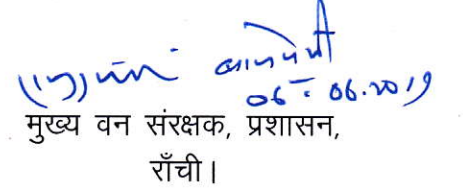 06-06.2019
मुख्य वन संरक्षक, प्रशासन,
राँची।